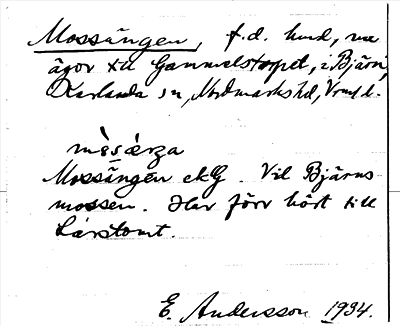 Mossängen, f.d. lund, nu
ägor till Gammelstorpet, i Bjärn,
Karlanda sn, Nordmarks hd, Vrmld.
mὸsǽrza
Mossängen ekG. Vil Bjärns
mossen. Har förr hört till
Larstomt.
E. Andersson 1934.